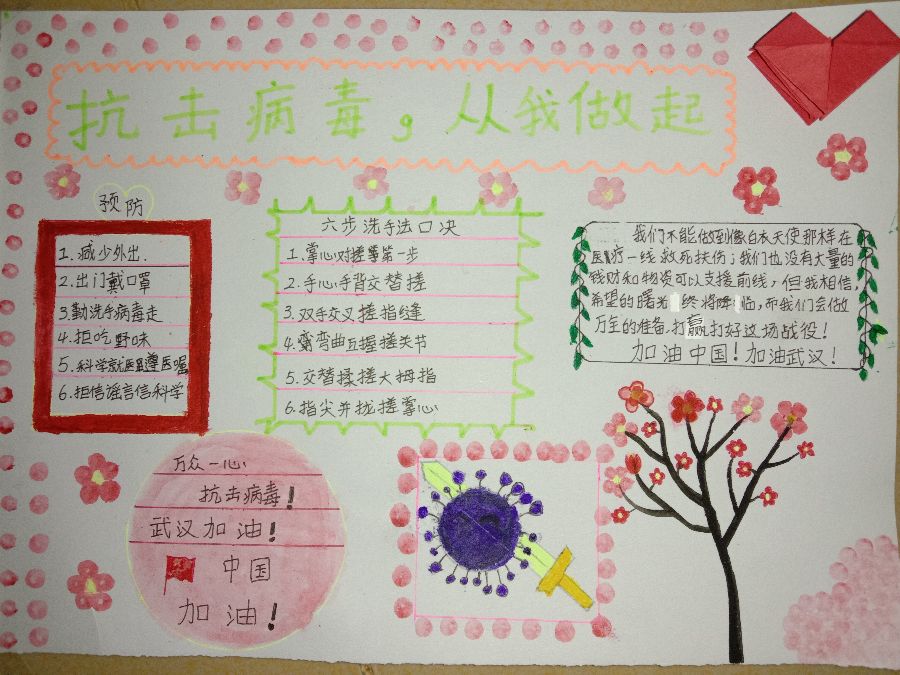 抗击病毒，从我做起
预防
1.减少外出.
2.出门戴口罩
3.勤洗手病毒走
4.拒吃野味
5.科学就医遵医嘱
6.拒信谣言信科学
六步洗手法口决
1.掌心对搓第一步
2.手心手背交替搓
3.双手交叉搓指缝
4.弯曲互握搓关节
5.交替揉搓大拇指
6.指尖并拢搓掌心
我们不能做到像白衣天使那样在
医疗一线救死扶伤；我们也没有大量的
钱财和物资可以支援前线，但我相信，
希望的曙光终将降临，而我们会做
万全的准备.打赢打好这场战役！
加油中国！加油武汉！
万众一心
抗击病毒！
武汉加油！
中国
加油！